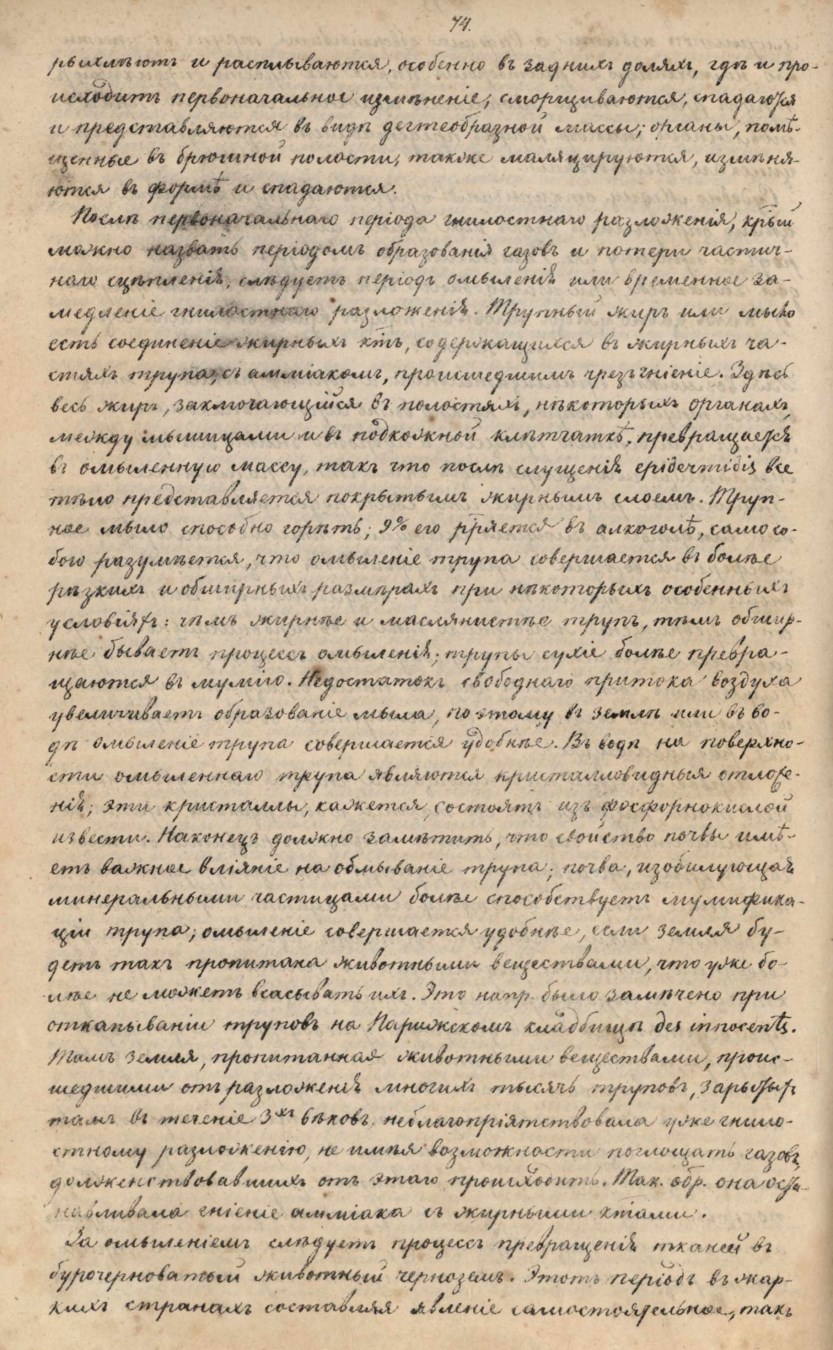 74.
рыхлѣютъ и расплываются, особенно въ заднихъ доляхъ, гдѣ и про-
исходитъ первоначальное измѣненіе, сморщиваются, спадаются
и представляются въ видѣ дегтеобразной массы; органы, помѣ-
щенные въ брюшной полости, также маляцируются, измѣня-
ются въ формѣ и спадаются.
Послѣ первоначальнаго періода гнилостнаго разложенія, крый
можно назвать періодомъ образованія газовъ и потери частич-
наго сцѣпленія, слѣдуетъ періодъ омыленія или временное за-
медленіе гнилостнаго разложенія. Трупный жиръ или мыло
есть соединеніе жирныхъ ктъ, содержащихся въ жирныхъ ча-
стяхъ трупа, съ амміакомъ, происшедшимъ чрезъ гніеніе. Здѣсь
весь жиръ, заключающійся въ полостяхъ, нѣкоторыхъ органахъ
между мышцами и въ подкожной клѣтчаткѣ, превращается
въ омыленную массу, такъ что послѣ слущенія epidermidis все
тѣло представляется покрытымъ жирнымъ слоемъ. Труп-
ное мыло способно горѣть; 9% его рряется въ алкоголѣ, само со-
бою разумѣется, что омыленіе трупа совершается въ болѣе
рѣзкихъ и обширныхъ размѣрахъ при нѣкоторыхъ особенныхъ
условіяхъ: чѣмъ жирнѣе и маслянистѣе трупъ, тѣмъ обшир-
нѣе бываетъ процессъ омыленія; трупы сухіе болѣе превра-
щаются въ мумію. Недостатокъ свободнаго притока воздуха
увеличиваетъ образованіе мыла, по этому въ землѣ или въ во-
дѣ омыленіе трупа совершается удобнѣе. Въ водѣ на поверхно-
сти омыленнаго трупа являются кристалловидныя отложе-
нія; эти кристаллы, кажется, состоятъ изъ фосфорнокислой
извести. Наконецъ должно замѣтить, что свойство почвы имѣ-
етъ важное вліяніе на обмываніе трупа; почва, изобилующая
минеральными частицами болѣе способствуетъ мумифика-
ціи трупа; омыленіе совершается удобнѣе, если земля бу-
детъ такъ пропитана животными веществами, что уже бо-
лѣе не можетъ всасывать ихъ. Это напр. было замѣчено при
откапываніи труповъ на Парижскомъ кладбищѣ des innocents.
Тамъ земля, пропитанная животными веществами, проис-
шедшими отъ разложенія многихъ тысячь труповъ, зарытыхъ
тамъ въ теченіе 3хъ вѣковъ, неблагопріятствовала уже гнило-
стному разложенію, не имѣя возможности поглощать газовъ,
долженствовавшихъ отъ этаго происходить. Так. обр. она оста-
навливала гніеніе амміака съ жирными ктами.
За омыленіемъ слѣдуетъ процессъ превращенія тканей въ
бурочерноватый животный черноземъ. Этотъ періодъ въ жар-
кихъ странахъ составляя явленіе самостоятельное, такъ